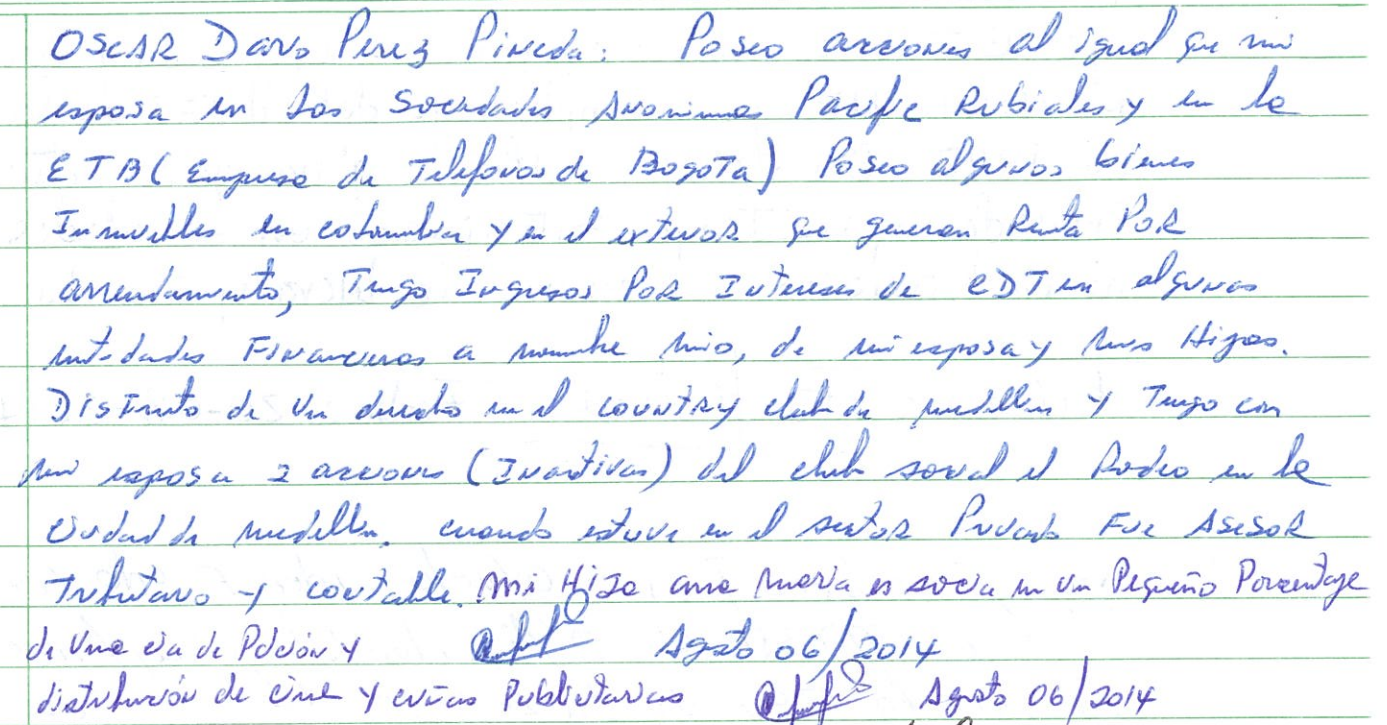 OSCAR Dario Perez Pineda: Poseo acciones al igual que mi
esposa en las Sociedades Anonimas Pacific Rubiales y en la
ETB (Empresa de Telefonos de Bogota) Poseo algunos bienes
Inmuebles en colombia y en el exterior que generan Renta POR
arrendamiento, Tengo Ingresos POR Intereses de CDT en algunas
entidades Financieras a nombre mio, de mi esposa y mis Hijos.
Disfruto de un derecho en el country club de medellin y Tengo con
mi esposa 2 acciones (Inactivas) del club social el Rodeo en la
ciudad de medellin. cuando estuve en el sector Privado Fue ASESOR
Tributario y contable. Mi Hija ana maria es socia en un Pequeño Porcentaje
de una cia de Pdción y Agosto 06/2014
distribución de cine y cuñas Publicitarias Agosto 06/2014